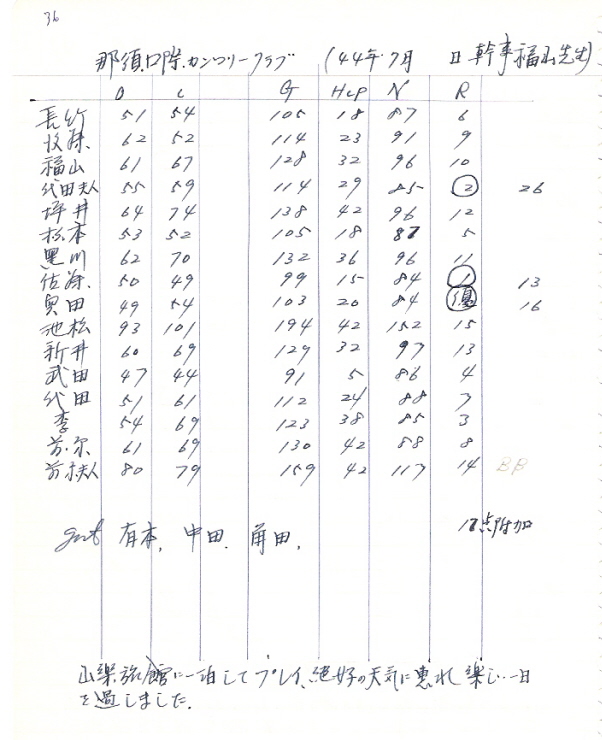 36
那須国際カンツリークラブ (44年7月 日 幹事福山先生)
O L G HcP N R
長竹 51 54 105 18 87 6
牧原 62 52 114 23 91 9
福山 61 67 128 32 96 10
代田夫人 55 59 114 29 85 2 26
坪井 64 74 138 42 96 12
松本 53 52 105 18 87 5
黒川 62 70 132 36 96 11
佐藤 50 49 99 15 84 1 13
奥田 49 54 103 20 84 優 16
池松 93 101 194 42 152 15
新井 60 69 129 32 97 13
武田 47 44 91 5 86 4
代田 51 61 112 24 88 7
李 54 69 123 38 85 3
61 69 130 42 88 8
夫人 80 79 159 42 117 14 BB
有本, 中田, 角田, 点附加
山楽旅館に一泊してプレイ、絶好の天気に恵れ楽しい一日
を過しました.